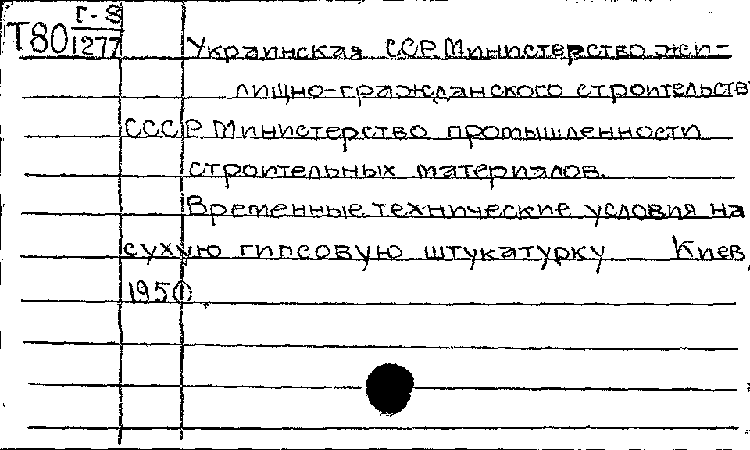 Г-8
Т80 1277
Украинская ССР Министерство жи-
лищно-гражданского строительств
СССР Министерство промышленности
строительных материалов.
Временные технические условия на
сухую гипсовую штукатурку Киев,
1950.